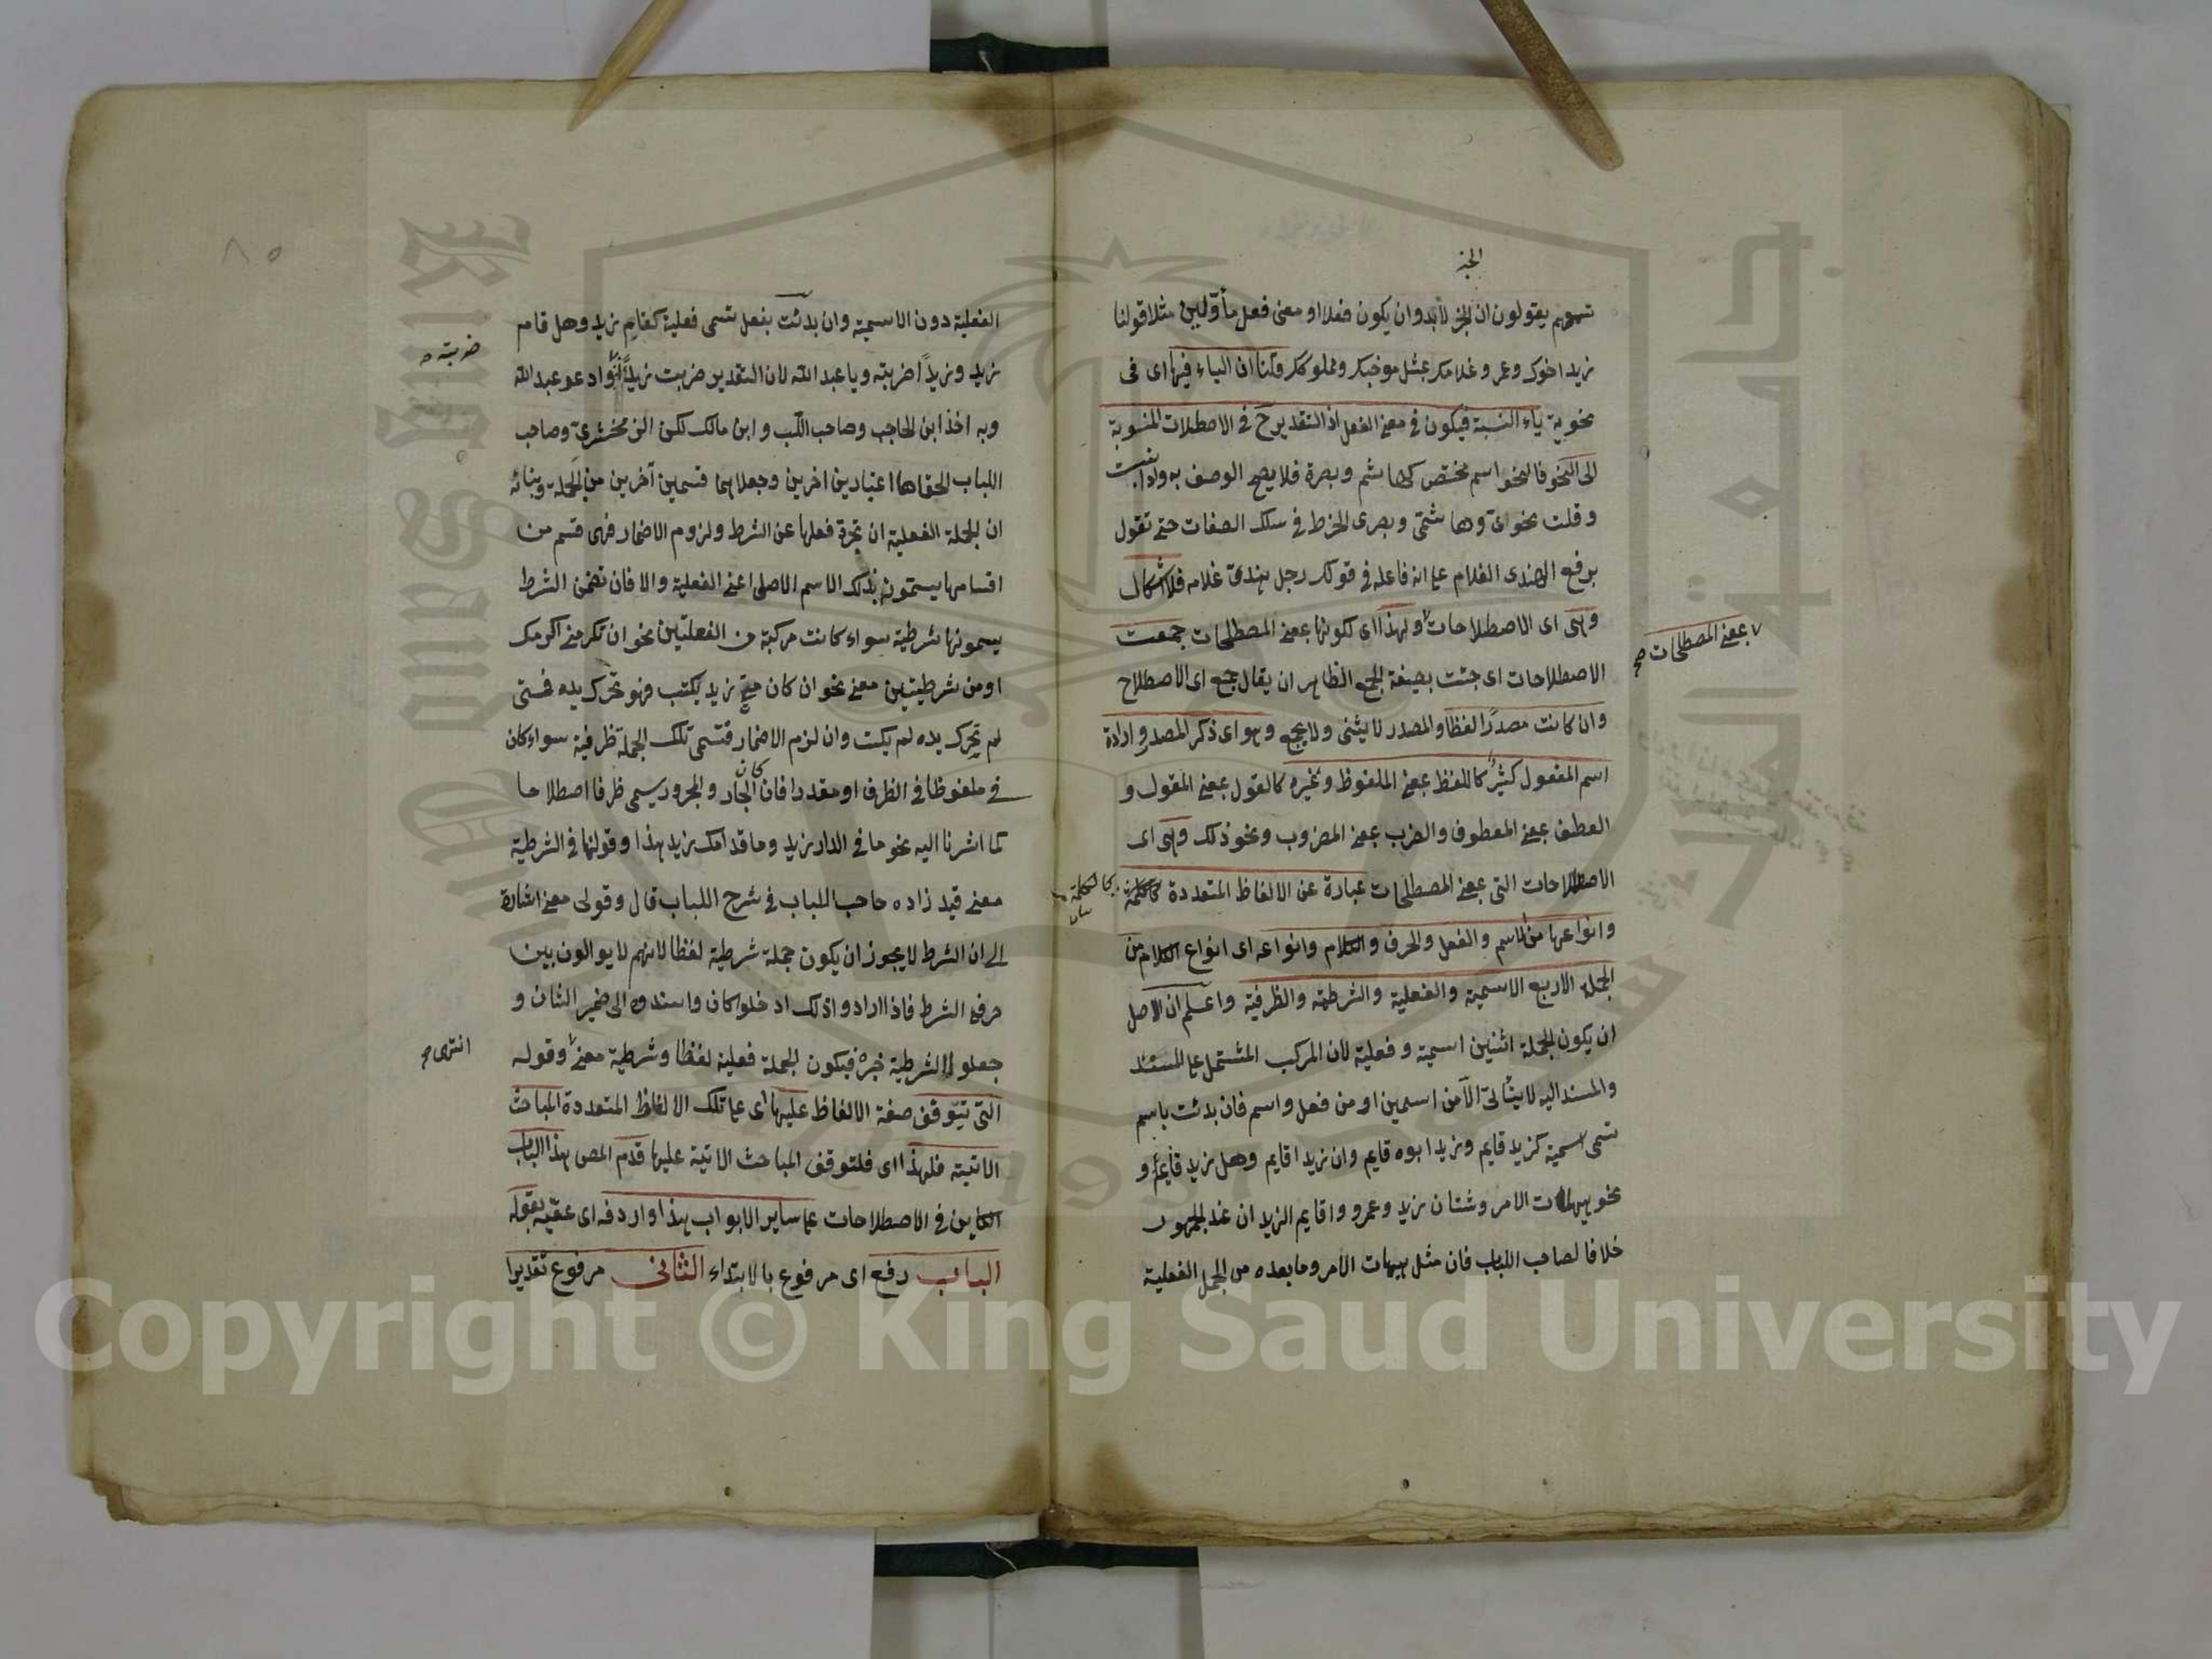 الخبر
تسمهم يقولون ان الخبر لابد وان يكون فعلا او معنى فعل مأولين مثلا قولنا
زيد اخوك وعمرو غلامك بمثل موخيك ومملوكك وقلنا ان الياء فيها اى فى
نحوية ياء النسبة فيكون فى معنى الفعل اذ التقدير ح فى الاصطلاحات المنسوبة
الى النحو فالنحو اسم مختص كهاشم وبصرة فلا يصح الوصف به ولذا نسبت
وقلت نحوى وهاشمى وبصرى انخرط فى سلك الصفات حتى تقول
برفع الهندى الغلام على انه فاعله فى قولك رجل هندى غلامه فلا اشكال
وهى اى الاصطلاحات ولهذا اى لكونها بمعنى المصطلحات جمعت
٧ بمعنى المصطلحات صح
الاصطلاحات اى جئت بصيغة الجمع الظاهر ان يقال جمع اى الاصطلاح
وان كانت مصدرا لفظا والمصدر لا يثنى ولا يجمع وهو اى ذكر المصدر وارادة
اسم المفعول كثير كاللفظ بمعنى الملفوظ وغيره كالقول بمعنى المقول و
العطف بمعنى المعطوف والضرب بمعنى المضروب ونحو ذلك وهى اى
الاصطلاحات التى بمعنى المصطلحات عبارة عن الالفاظ المتعددة كالكلمة
كالكلمة
وانواعها من الاسم والفعل والحرف والكلام وانواعه اى انواع الكلام من
الجملة الاربع الاسمية والفعلية والشرطية والظرفية واعلم ان الاصل
ان يكون الجملة اثنين اسمية وفعلية لان المركب المشتمل على المسند
والمسند اليه لا يتأتى الا من اسمين او من فعل واسم فان بدئت باسم
تسمى اسمية كزيد قايم وزيد ابوه قايم وان زيدا قايم وهل زيد قايم و
نحو هيهات الامر وشتان زيد وعمرو واقايم الزيدان عند الجمهور
خلافا لصاحب اللباب فان مثل هيهات الامر وما بعده من الجمل الفعلية
٨٥
الفعلية دون الاسمية وان بدئت بفعل تسمى فعلية كقام زيد وهل قام
زيد وزيدا ضربته ويا عبد الله لان التقدير ضربت زيدا وادعو عبد الله
ضربته صح
وبه اخذ ابن الحاجب وصاحب اللب وابن مالك لكن الزمخشرى وصاحب
اللباب الحقاها اعتبارين اخرين وجعلاهما قسمين آخرين من الجملة وبنائه
ان الجملة الفعلية ان تجرد فعلها عن الشرط ولزوم الاضمار فهى قسم من
اقسامها يسمون بذلك الاسم الاصلى اعنى الفعلية والا فان تضمن الشرط
يسمونها شرطية سواء كانت مركبة من الفعليتين نحو ان تكرمنى اكرمك
او من شرطيتين معنى نحو ان كان متى زيد يكتب فهو تحرك يده فمتى
لم تحرك يده لم يكتب وان لزم الاضمار فتسمى تلك الجملة ظرفية سواء كان
فى ملفوظا فى الظرف او مقدرا فان كان الجار والمجرور يسمى ظرفا اصطلاحا
كما اشرنا اليه نحو ما فى الدار زيد وما قدامك زيد هذا وقولنا فى الشرطية
معنى قيد زاده صاحب اللباب فى شرح اللباب قال وقولى معنى اشارة
الى ان الشرط لا يجوز ان يكون جملة شرطية لفظا لانهم لا يوالون بين
حرفى الشرط فاذا ارادوا ذلك ادخلوا كان واسندوه الى ضمير الشان و
جعلوا الشرطية خبره فيكون الجملة فعلية لفظا وشرطية معنى وقوله
انتهى صح
التى تتوقف صفة الالفاظ عليها اى على تلك الالفاظ المتعددة المباحث
الاتية فلهذا اى فلتوقف المباحث الاتية عليها قدم المص هذا الباب
الكاين فى الاصطلاحات على ساير الابواب هذا واردفه اى عقبه بقوله
الباب رفع اى مرفوع بالابتداء الثانى مرفوع تقديرا
Copyright © King Saud University